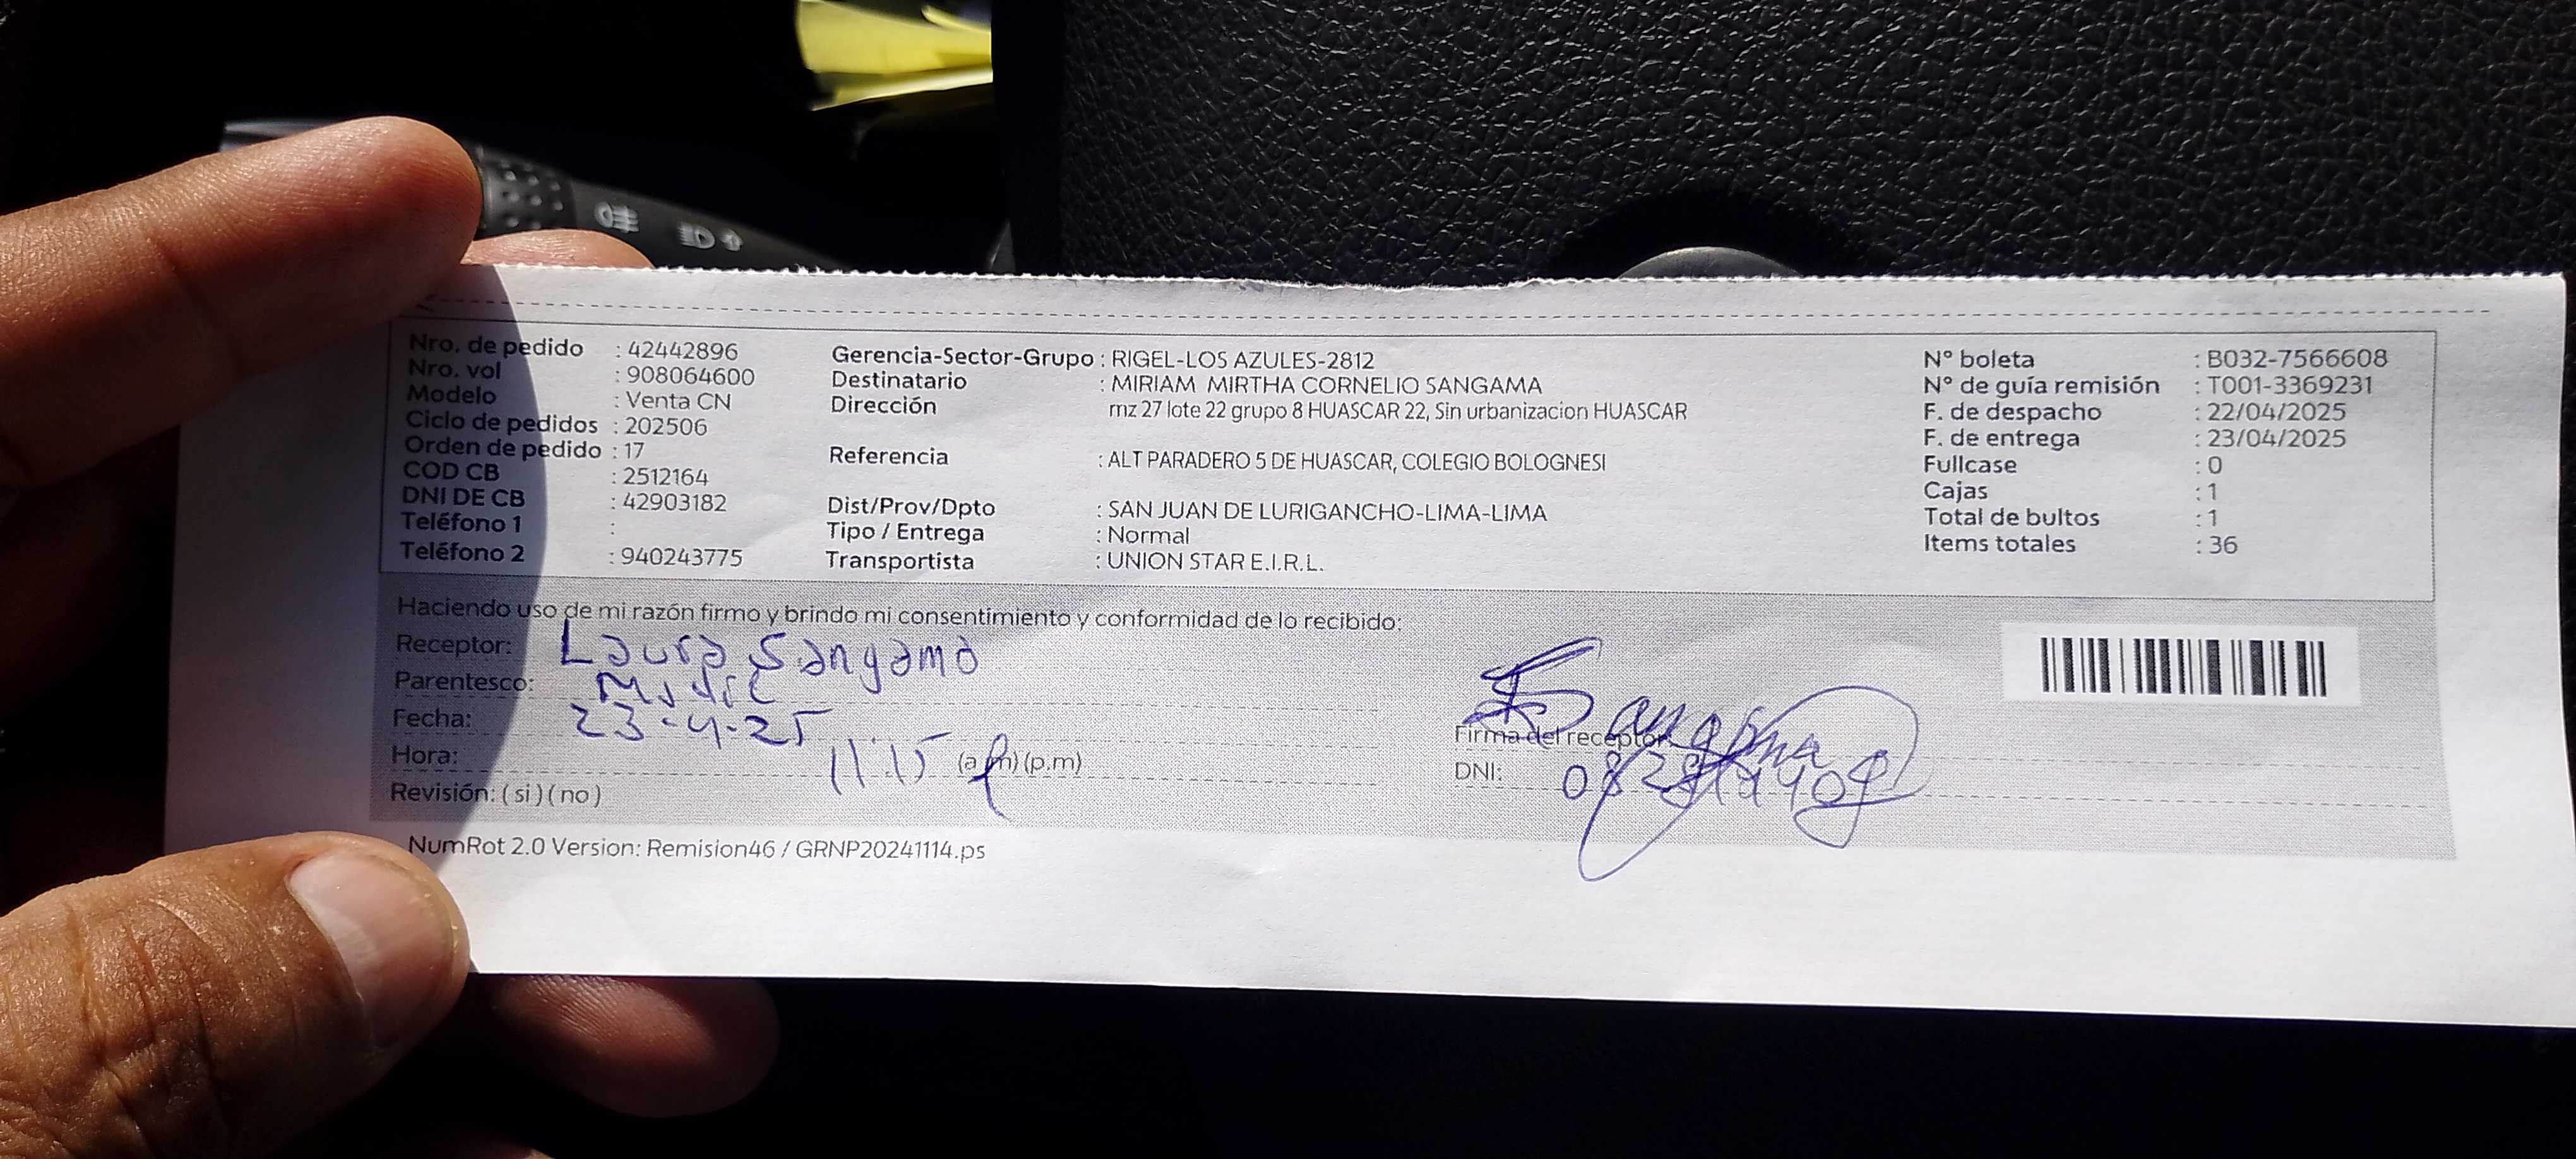 Nro. de pedido : 42442896
Nro. vol : 908064600
Modelo : Venta CN
Ciclo de pedidos : 202506
Orden de pedido : 17
COD CB : 2512164
DNI DE CB : 42903182
Teléfono 1 :
Teléfono 2 : 940243775
Gerencia-Sector-Grupo : RIGEL-LOS AZULES-2812
Destinatario : MIRIAM MIRTHA CORNELIO SANGAMA
Dirección mz 27 lote 22 grupo 8 HUASCAR 22, Sin urbanizacion HUASCAR
Referencia : ALT PARADERO 5 DE HUASCAR, COLEGIO BOLOGNESI
Dist/Prov/Dpto : SAN JUAN DE LURIGANCHO-LIMA-LIMA
Tipo / Entrega : Normal
Transportista : UNION STAR E.I.R.L.
N° boleta : B032-7566608
N° de guía remisión : T001-3369231
F. de despacho : 22/04/2025
F. de entrega : 23/04/2025
Fullcase : 0
Cajas : 1
Total de bultos : 1
Items totales : 36
Haciendo uso de mi razón firmo y brindo mi consentimiento y conformidad de lo recibido:
Receptor: Laura Sangama
Parentesco:
Fecha: 23-4-25
Hora: 11:15 (a.m) (p.m)
Revisión: ( si ) ( no )
Firma del receptor
DNI:
NumRot 2.0 Version: Remision46 / GRNP20241114.ps